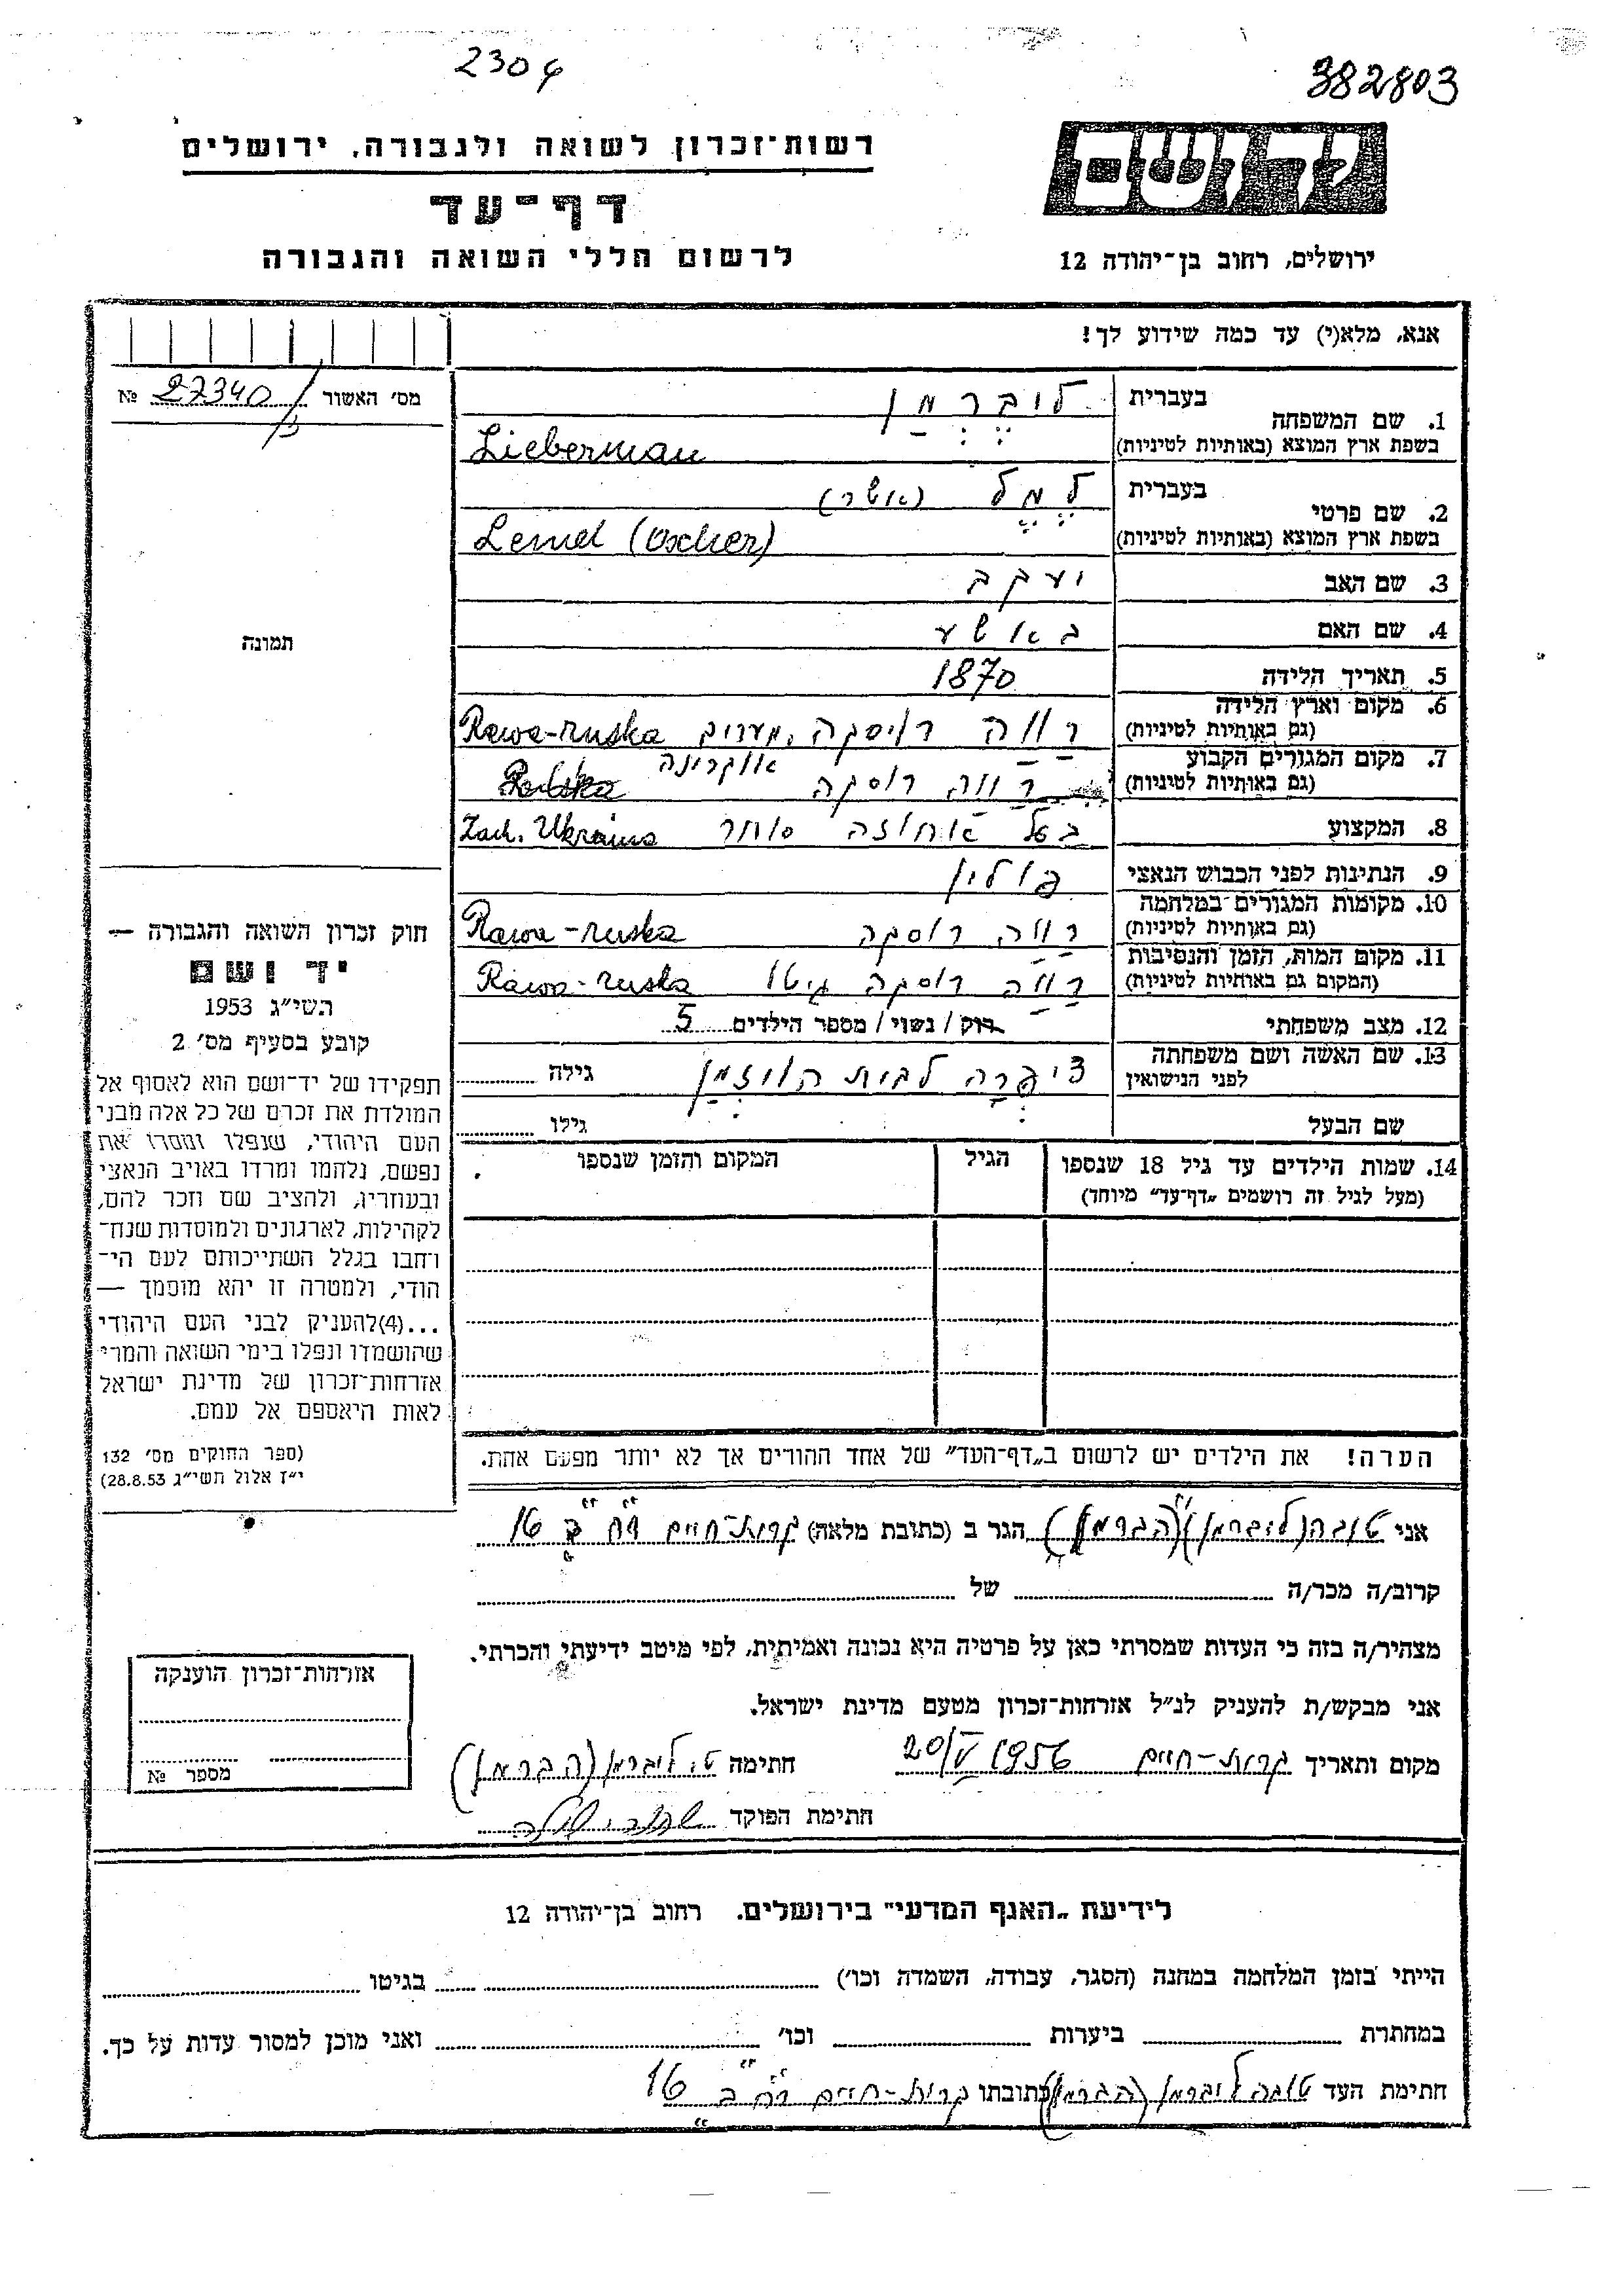 2304
382803
רשות־זכרון לשואה ולגבורה, ירושלים
דף־עד
לרשום חללי השואה והגבורה
יד ושם
ירושלים, רחוב בן־יהודה 12
אנא, מלא(י) עד כמה שידוע לך!
מס׳ האשור 27340 №
1. שם המשפחה
בעברית לִיבֶּרְמַן
בשפת ארץ המוצא (באותיות לטיניות) Lieberman
2. שם פרטי
בעברית לֶמֶל (אשר)
בשפת ארץ המוצא (באותיות לטיניות) Lemel (Oscher)
3. שם האב יעקב
4. שם האם באשע
5. תאריך הלידה 1870
6. מקום וארץ הלידה
(גם באותיות לטיניות) רַוַּוה רוסקה, מערוב Rawa-ruska
אוקרינה
7. מקום המגורים הקבוע
(גם באותיות לטיניות) רַוַוה רוסקה
8. המקצוע בעל אחוזה סוחר Zach. Ukraina
9. הנתינות לפני הכבוש הנאצי פולין
10. מקומות המגורים במלחמה
(גם באותיות לטיניות) רַוַוה רוסקה Rawa-ruska
11. מקום המות, הזמן והנסיבות
(המקום גם באותיות לטיניות) רַוַוה רוסקה גיטו Rawa-ruska
12. מצב משפחתי רוק / נשוי / מספר הילדים 5
13. שם האשה ושם משפחתה
לפני הנישואין ציפְּרה לבית הוֹזמַן גילה
שם הבעל גילו
14. שמות הילדים עד גיל 18 שנספו הגיל המקום והזמן שנספו
(מעל לגיל זה רושמים „דף־עד״ מיוחד)
הערה! את הילדים יש לרשום ב„דף־העד״ של אחד ההורים אך לא יותר מפעם אחת.
תמונה
חוק זכרון השואה והגבורה —
יד ושם
תשי״ג 1953
קובע בסעיף מס׳ 2
תפקידו של יד־ושם הוא לאסוף אל
המולדת את זכרם של כל אלה מבני
העם היהודי, שנפלו ומסרו את
נפשם, נלחמו ומרדו באויב הנאצי
ובעוזריו, ולהציב שם וזכר להם,
לקהילות, לארגונים ולמוסדות שנח־
רחבו בגלל השתייכותם לעם הי־
הודי, ולמטרה זו יהא מוסמך —
...(4)להעניק לבני העם היהודי
שהושמדו ונפלו בימי השואה והמרי
אזרחות־זכרון של מדינת ישראל
לאות היאספם אל עמם.
(ספר החוקים מס׳ 132
י״ז אלול תשי״ג 28.8.53)
אני טובה (ליברמן) (הברמן) הגר ב (כתובת מלאה) קרית-חיים רח׳ ב 16
קרוב/ה מכר/ה של
מצהיר/ה בזה כי העדות שמסרתי כאן על פרטיה היא נכונה ואמיתית, לפי מיטב ידיעתי והכרתי.
אני מבקש/ת להעניק לנ״ל אזרחות־זכרון מטעם מדינת ישראל.
מקום ותאריך קרית-חיים 20/V 1956 חתימה ט. ליברמן (הברמן)
חתימת הפוקד
אזרחות־זכרון הוענקה
מספר №
לידיעת „האגף המדעי״ בירושלים. רחוב בן־יהודה 12
הייתי בזמן המלחמה במחנה (הסגר, עבודה, השמדה וכו׳) בגיטו
במחתרת ביערות וכו׳ ואני מוכן למסור עדות על כך.
חתימת העד טובה ליברמן (הברמן) כתובתו קרית-חיים רח׳ ב 16